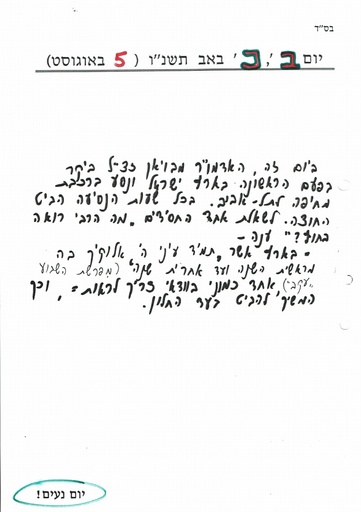 בס"ד
יום ב', כ' באב תשנ"ו (5 באוגוסט)
ביום זה, האדמו"ר מבויאן זצ"ל ביקר
בפעם הראשונה בארץ ישראל ונסע ברכבת
מחיפה לתל-אביב. בכל שעות הנסיעה הביט
החוצה. לשאלת אחד החסידים "מה הרבי רואה
בחוץ?" ענה -
"בארץ אשר "תמיד עיני ה' אלוקיך בה
מראשית השנה ועד אחרית שנה" (מפרשת השבוע
"עקב") אחד כמוני בוודאי צריך לראות", וכך
המשיך להביט בעד החלון.
יום נעים!